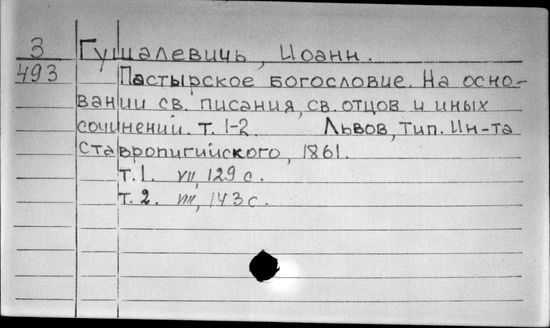 З Гушалевичь, Иоанн.
493 Пастырское богословие. На осно-
вании св. писания, св. отцов и иных
сочинений. т. 1-2. Львов, тип. Ин-та
Ставропигийского, 1861.
т. 1. VII, 129 с.
т. 2. VIII, 143 с.